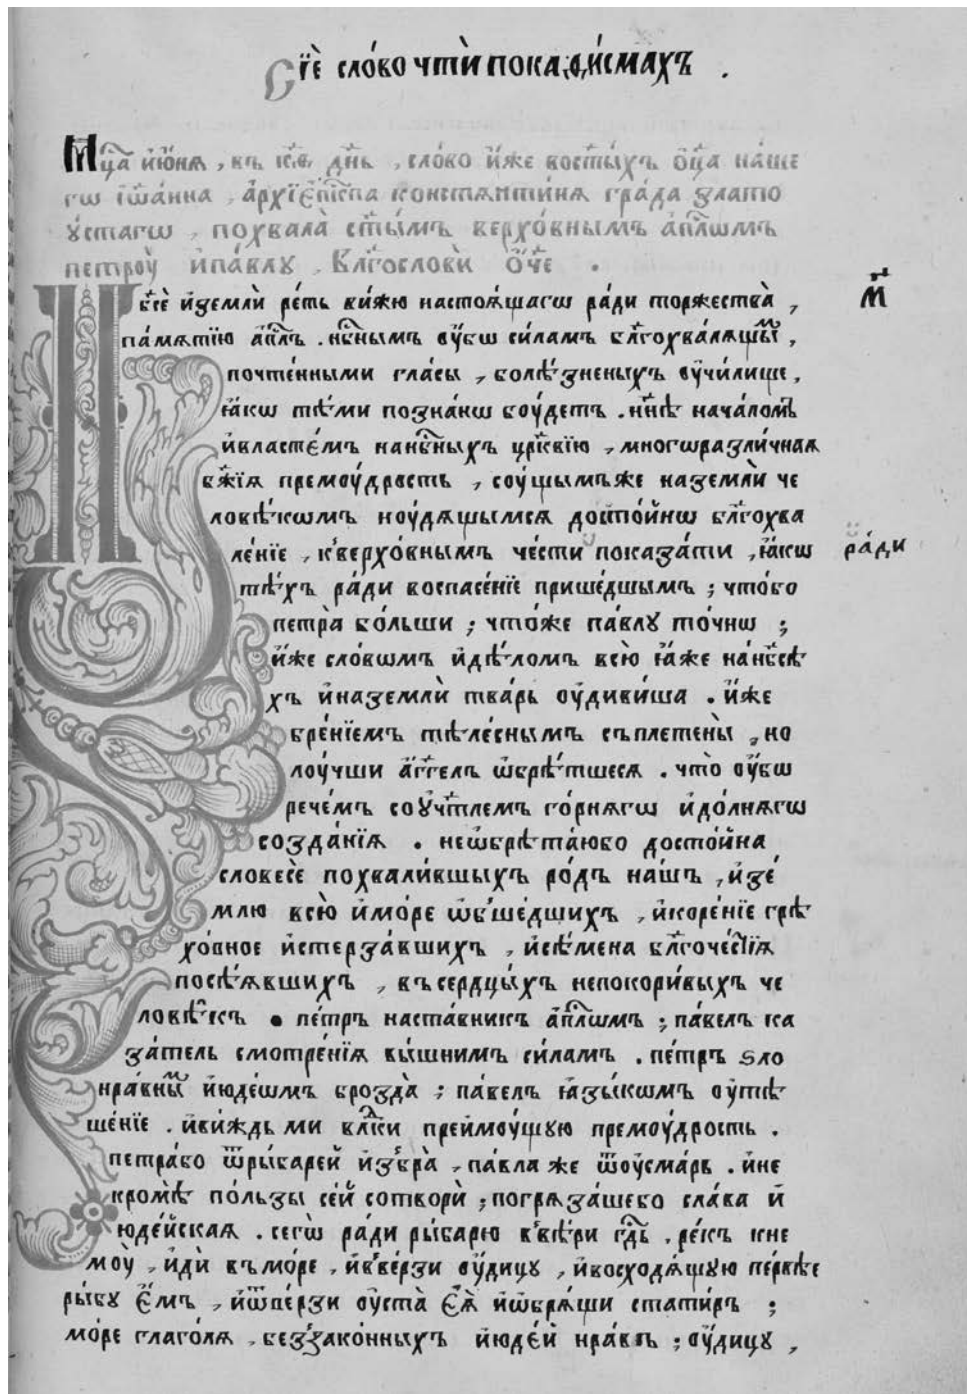 Сїѐ сло́во чтѝ покаѳи́смахъ .
Мц҇а і҆ю́нѧ , въ к҃ѳ дн҃ь , сло́во и҆́же вост҃ы́хъ ѻ҆ц҃а на́ше
гѡ і҆ѡа́нна , а҆рхїе҆пⷭ҇кпа констѧнти́нѧ гра́да злато
ѹ҆́стагѡ , похвала̀ ст҃ы́мъ верхо́внымъ а҆пⷭ҇лѡмъ
петроу̀ и҆па́влꙋ , Бл҃гословѝ ѻ҆́ч҃е .
Нб҃сѐ и҆землѝ ре́ть ви́жю настоѧ́щагѡ ра́ди торжества̀ ,
па́мѧтїю а҆пⷭ҇лъ . нбⷭ҇нымъ ѹ҆́бѡ си́ламъ бл҃гохва́лѧщмы̀ ,
почте́нными гла́сы , болѣ́зненыхъ ѹ҆чи́лище ,
ꙗ҆́кѡ тѣ́ми позна́нѡ бѹ́детъ . нн҃ѣ нача́ломъ
и҆власте́мъ нанбⷭ҇ныхъ цр҃квїю , многѡразли́чная
бж҃їѧ премѹ́дрость , сѹ́щымъже наземлѝ че
ловѣ́кѡмъ нѹ́дѧщымсѧ досто́йнѡ бл҃гохва
ле́нїе , к̾верхо́внымъ че́сти показа́ти , ꙗ҆́кѡ
тѣ́хъ ра́ди воспасе́нїе прише́дшымъ ; что́бо
петра̀ бо́льши ; что́же па́влꙋ то́чнѡ ;
и҆́же сло́вѡмъ и҆дѣ́ломъ всю̀ ꙗ҆́же нанб҃сѣ
хъ и҆наземлѝ тва́рь ѹ҆диви́ша . и҆́же
бре́нїемъ тѣле́снымъ съплете́ны̀ , но
лѹ́чши а҆́гг҃елъ ѡ҆брѣ́тшеесѧ . что̀ ѹ҆́бѡ
рече́мъ соѹ҆чт҃лемъ го́рнѧгѡ и҆до́лнѧгѡ
созда́нїѧ . неѡ҆брѣта́юбо досто́йна
словесѐ похвали́вшыхъ ро́дъ на́шъ , и҆зе́
млю всю̀ и҆мо́ре ѡ҆б̾ше́дшихъ , и҆коре́нїе грѣ
хо́вное и҆стерза́вшихъ , и҆сѣ́мена бл҃гоче́стїѧ
посѣ́ѧвшихъ , въсердцы́хъ непокори́выхъ че
ловѣ̑къ . пе́тръ наста́вникъ а҆пⷭ҇лѡмъ ; па́велъ ка
за́тель смотре́нїѧ вы́шнимъ си́ламъ . пе́тръ ѕло
нра́внымъ и҆юде́ѡмъ брозда̀ ; па́велъ ꙗ҆зы́кѡмъ ѹ҆тѣ
ше́нїе . и҆ви́ждь ми влⷣки преймѹ́щꙋю премѹ́дрость .
петра́бо ѿры́барей и҆зб̾ра̀ , па́вла же ѿѹ҆сма́рь . и҆не
кромѣ̀ по́льзы се́й сотворѝ ; погрѧза́шебо сла́ва и҆
юде́йскаѧ . сегѡ̀ ра́ди ры́барю в̾вѣ́ри гдⷭ҇ь , ре́къ кне
мѹ̀ , и҆дѝ въмо́ре , и҆в̾ве́рзи ѹ҆́дицꙋ , и҆восходѧ́щꙋю пе́рвѣе
ры́бꙋ є҆́мъ , и҆ѿве́рзи ѹ҆ста̀ є҆ѧ̀ и҆ѡ҆брѧ́щи стати́ръ ;
мо́ре глаго́лѧ , без̾зако́нныхъ и҆юде́й нра́въ ; ѹ҆́дицꙋ ,
м҃
ра́ди